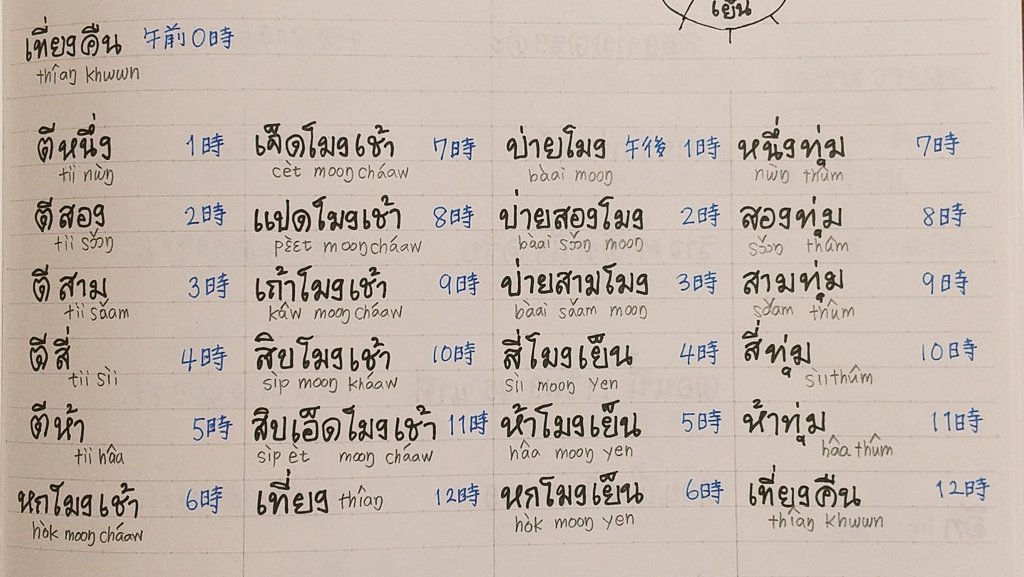 เย็น
เที่ยงคืน 午前0時
thîaŋ khwwn
ตีหนึ่ง 1時 เจ็ดโมงเช้า 7時 บ่ายโมง 午後 1時 หนึ่งทุ่ม 7時
tii nẁŋ cèt mooŋ cháaw bàai mooŋ nẁŋ thûm
ตีสอง 2時 แปดโมงเช้า 8時 บ่ายสองโมง 2時 สองทุ่ม 8時
tii sɔ̌ɔŋ pɛ̀ɛt mooŋ cháaw bàai sɔ̌ɔŋ mooŋ sɔ̌ɔŋ thûm
ตีสาม 3時 เก้าโมงเช้า 9時 บ่ายสามโมง 3時 สามทุ่ม 9時
tii sǎam kâw mooŋ cháaw bàai sǎam mooŋ sǎam thûm
ตีสี่ 4時 สิบโมงเช้า 10時 สี่โมงเย็น 4時 สี่ทุ่ม 10時
tii sìi sìp mooŋ kháaw sìi mooŋ yen sìi thûm
ตีห้า 5時 สิบเอ็ดโมงเช้า 11時 ห้าโมงเย็น 5時 ห้าทุ่ม 11時
tii hâa sìp èt mooŋ cháaw hâa mooŋ yen hâa thûm
หกโมงเช้า 6時 เที่ยง thîaŋ 12時 หกโมงเย็น 6時 เที่ยงคืน 12時
hòk mooŋ cháaw hòk mooŋ yen thîaŋ khwwn